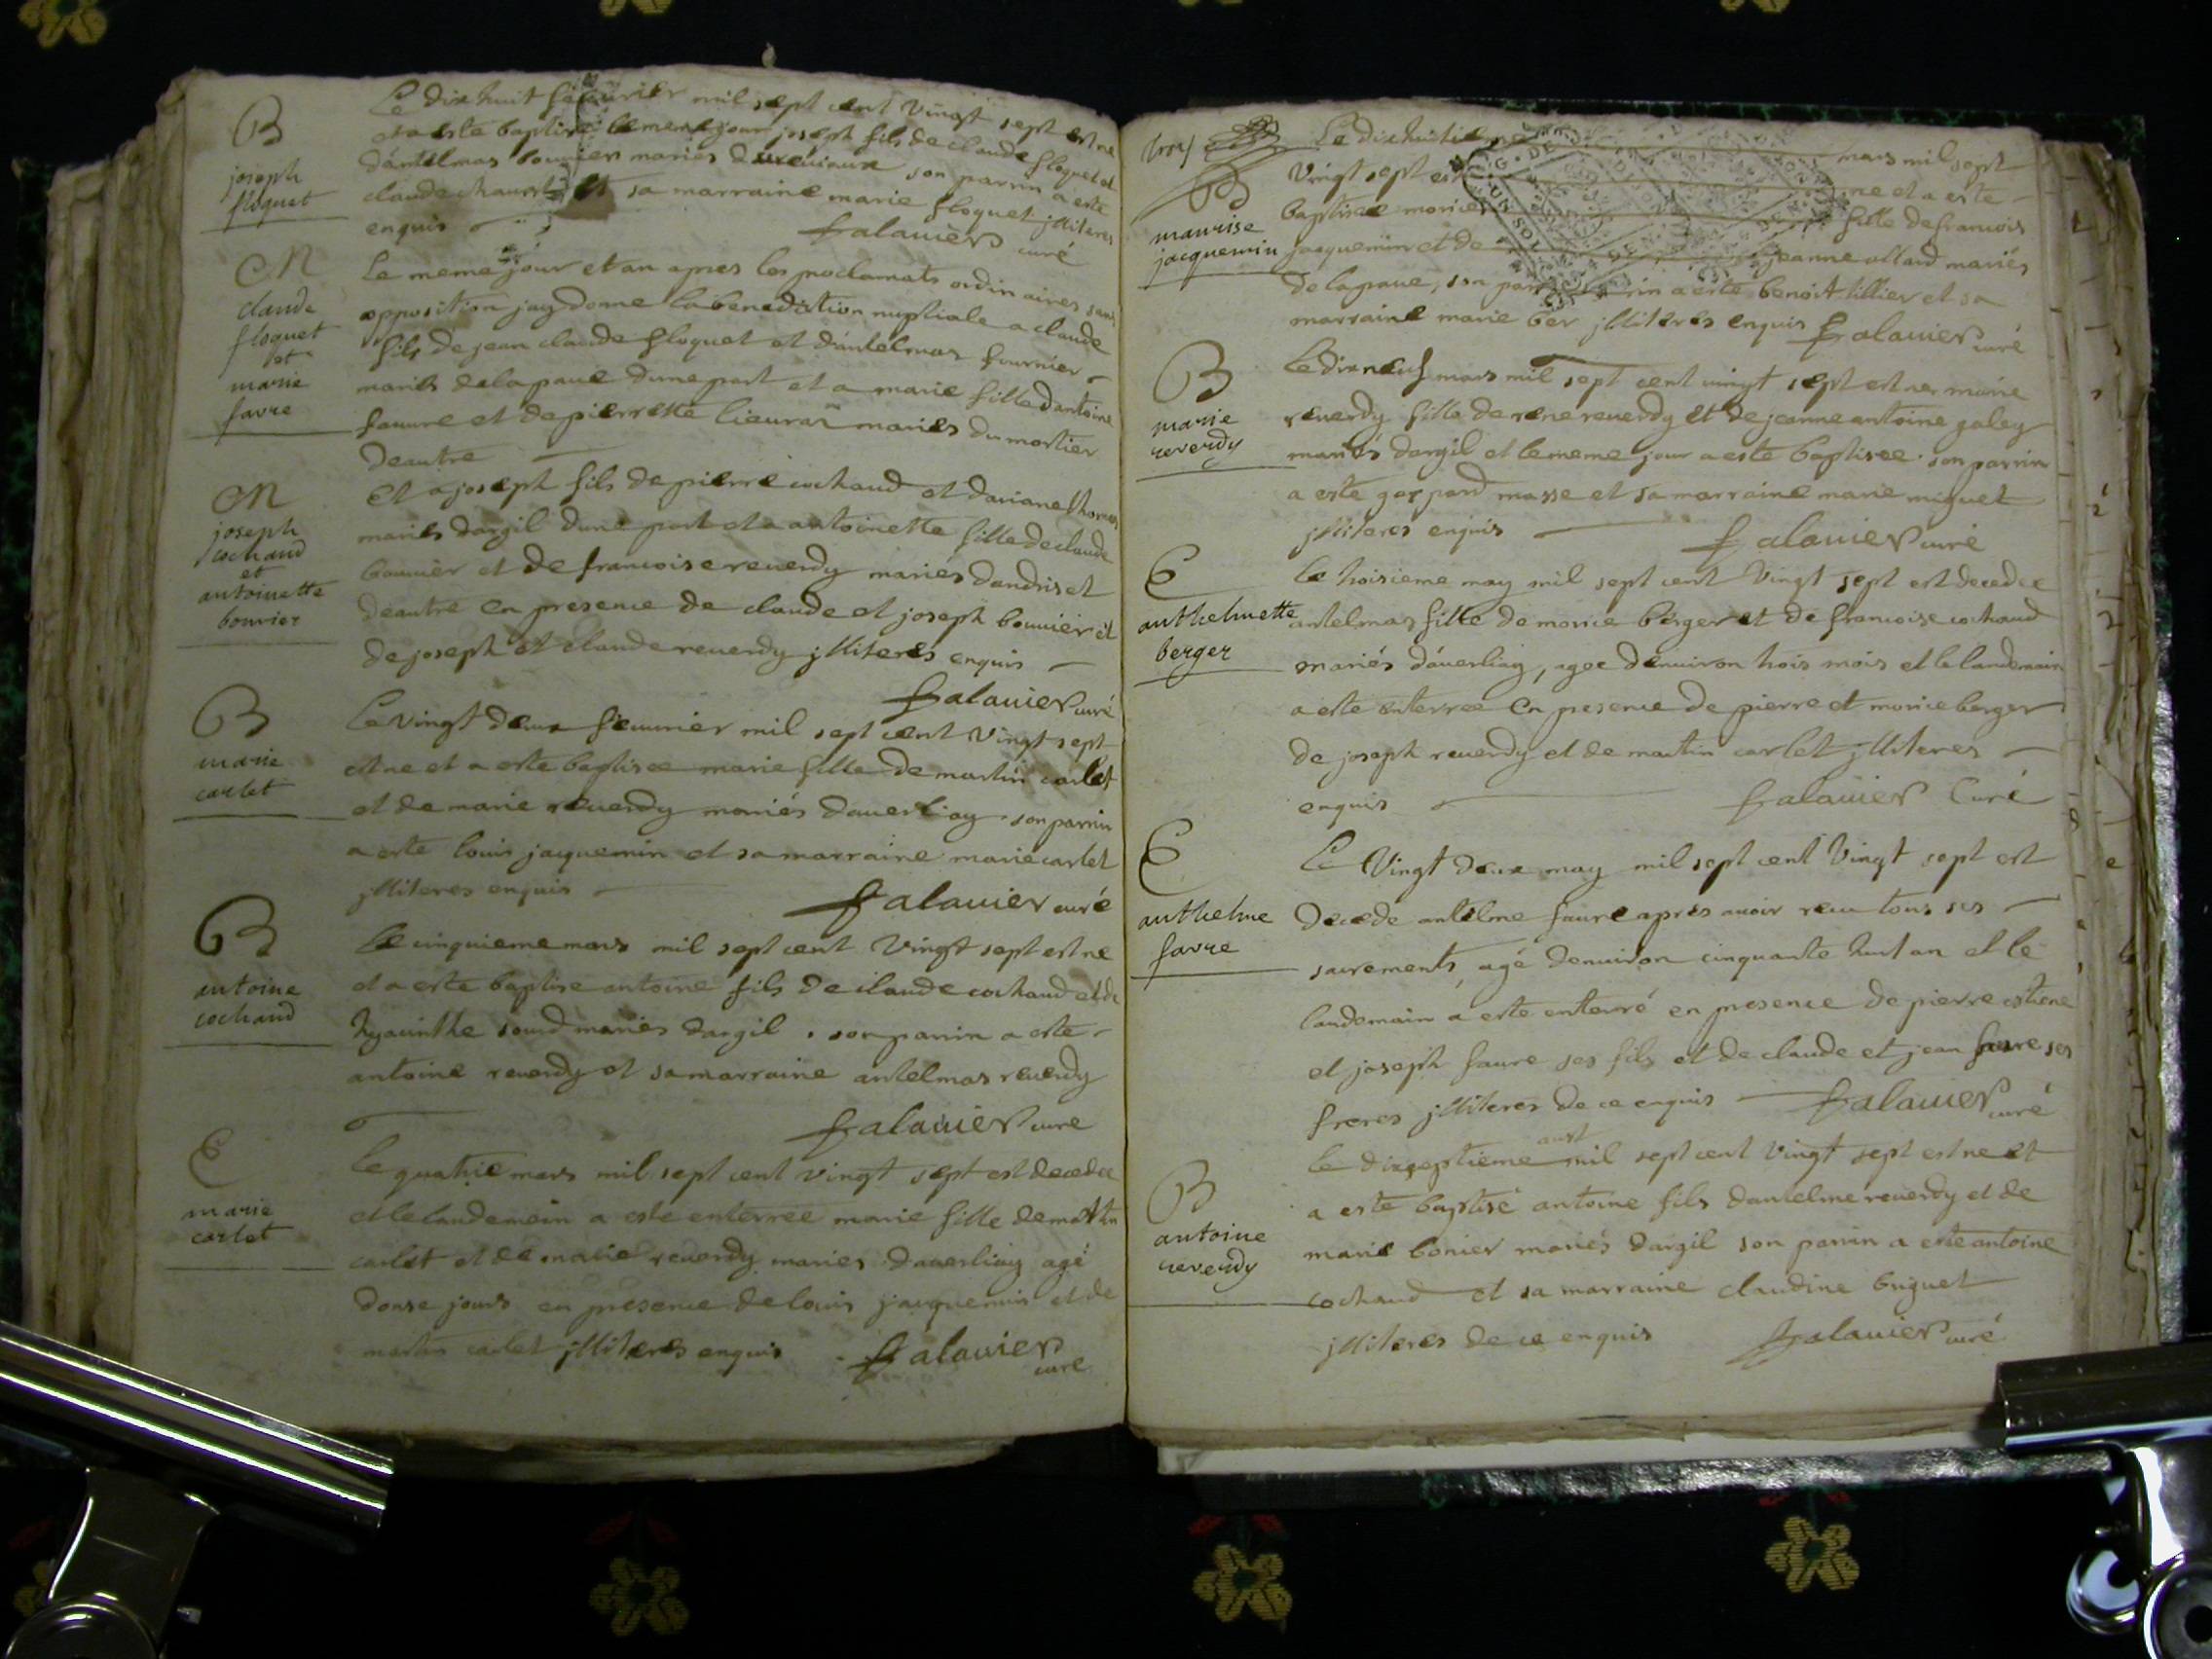 B
joseph
floquet
Le dix huit feuurier mil sept cent Vingt sept est ne
et a este baptise le meme jour joseph fils de claude floquet et
dantelmas bouuier mariés son parrin a este
claude et sa marraine marie floquet jlliteres
enquis
falauier curé
M
claude
floquet
et
marie
favre
Le meme jour et an apres les proclamats ordinaires sans
opposition jay donne la benediction nuptiale a claude
fils de jean claude floquet et dantelmas fournier
mariés de lapaue dune part et a marie fille dantoine
fauure et de pierrette lieuraz mariés du mortier
deautre
M
joseph
cochaud
et
antoinette
bouvier
Et a joseph fils de pierre cochaud et dariane thomas
mariés dargil dune part et a antoinette fille de claude
bouuier et de francoise reuerdy mariés dandriset
deautre en presence de claude et joseph bouuier et
de joseph et claude reuerdy jlliteres enquis
falauier curé
B
marie
carlet
Le vingt deux feuurier mil sept cent Vingt sept
est ne et a este baptisee marie fille de martin carlet
et de marie reuerdy mariés dauerliay son parrin
a este louis jacquemin et sa marraine marie carlet
jlliteres enquis
falauier curé
B
antoine
cochaud
Le cinquieme mars mil sept cent Vingt sept est ne
et a este baptise antoine fils de claude cochaud et de
hyacinthe sourd mariés dargil . son parrin a este
antoine reuerdy et sa marraine antelmas reuerdy
falauier cure
E
marie
carlet
Le quatrie mars mil sept cent vingt sept est decedee
et le landemain a este enterrée marie fille de martin
carlet et de marie reuerdy mariés dauerliay agé
douse jours en presence de louis jacquemin et de
martin carlet jlliteres enquis
falauier
cure
B
maurise
jacquemin
Le dixhuitie mars mil sept
Vingt sept est ne et a este
baptisee morice fille de francois
jacquemin et de jeanne allard mariés
de lapaue, son parrin a este benoit tillier et sa
marraine marie ber jlliteres enquis falauier curé
B
marie
reverdy
Le dixneuf mars mil sept cent vingt sept est nee marie
reuerdy fille de rene reuerdy et de jeanne antoine galey
mariés dargil et le meme jour a este baptisee . son parrin
a este gaspard masse et sa marraine marie miguet
jlliteres enquis
falauier curé
E
anthelmette
berger
Le troisieme may mil sept cent Vingt sept est decedee
antelmas fille de morice berger et de francoise cochaud
mariés dauerliay, agee denuiron trois mois et le landemain
a este enterree en presence de pierre et morice berger
de joseph reuerdy et de martin carlet jlliteres
enquis
falauier Curé
E
anthelme
favre
Le Vingt deux may mil sept cent Vingt sept est
decede antelme faure apres auoir receu tous ses
sacrements, agé denuiron cinquante huit an et le
landemain a este enterré en presence de pierre estiene
et joseph faure ses fils et de claude et jean faure ses
freres jlliteres de ce enquis falauier curé
B
antoine
reverdy
le dixseptieme aust mil sept cent Vingt sept est ne et
a este baptisé antoine fils dantelme reuerdy et de
marie bonier mariés dargil son parrin a este antoine
cochaud et sa marraine claudine buguet
jlliteres de ce enquis falauier curé